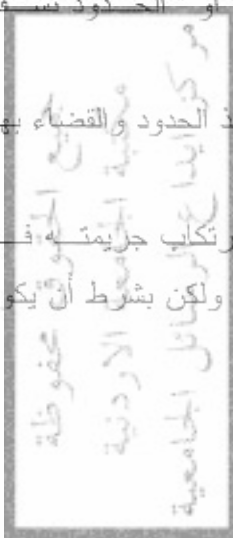 او الحدود بسـ
ذ الحدود والقضاء به
رتكاب جريمتـــه فـــ
ولكن بشرط أن يكو
جميع الحقوق محفوظة
مكتبة الجامعة الاردنية
مركز ايداع الرسائل الجامعية